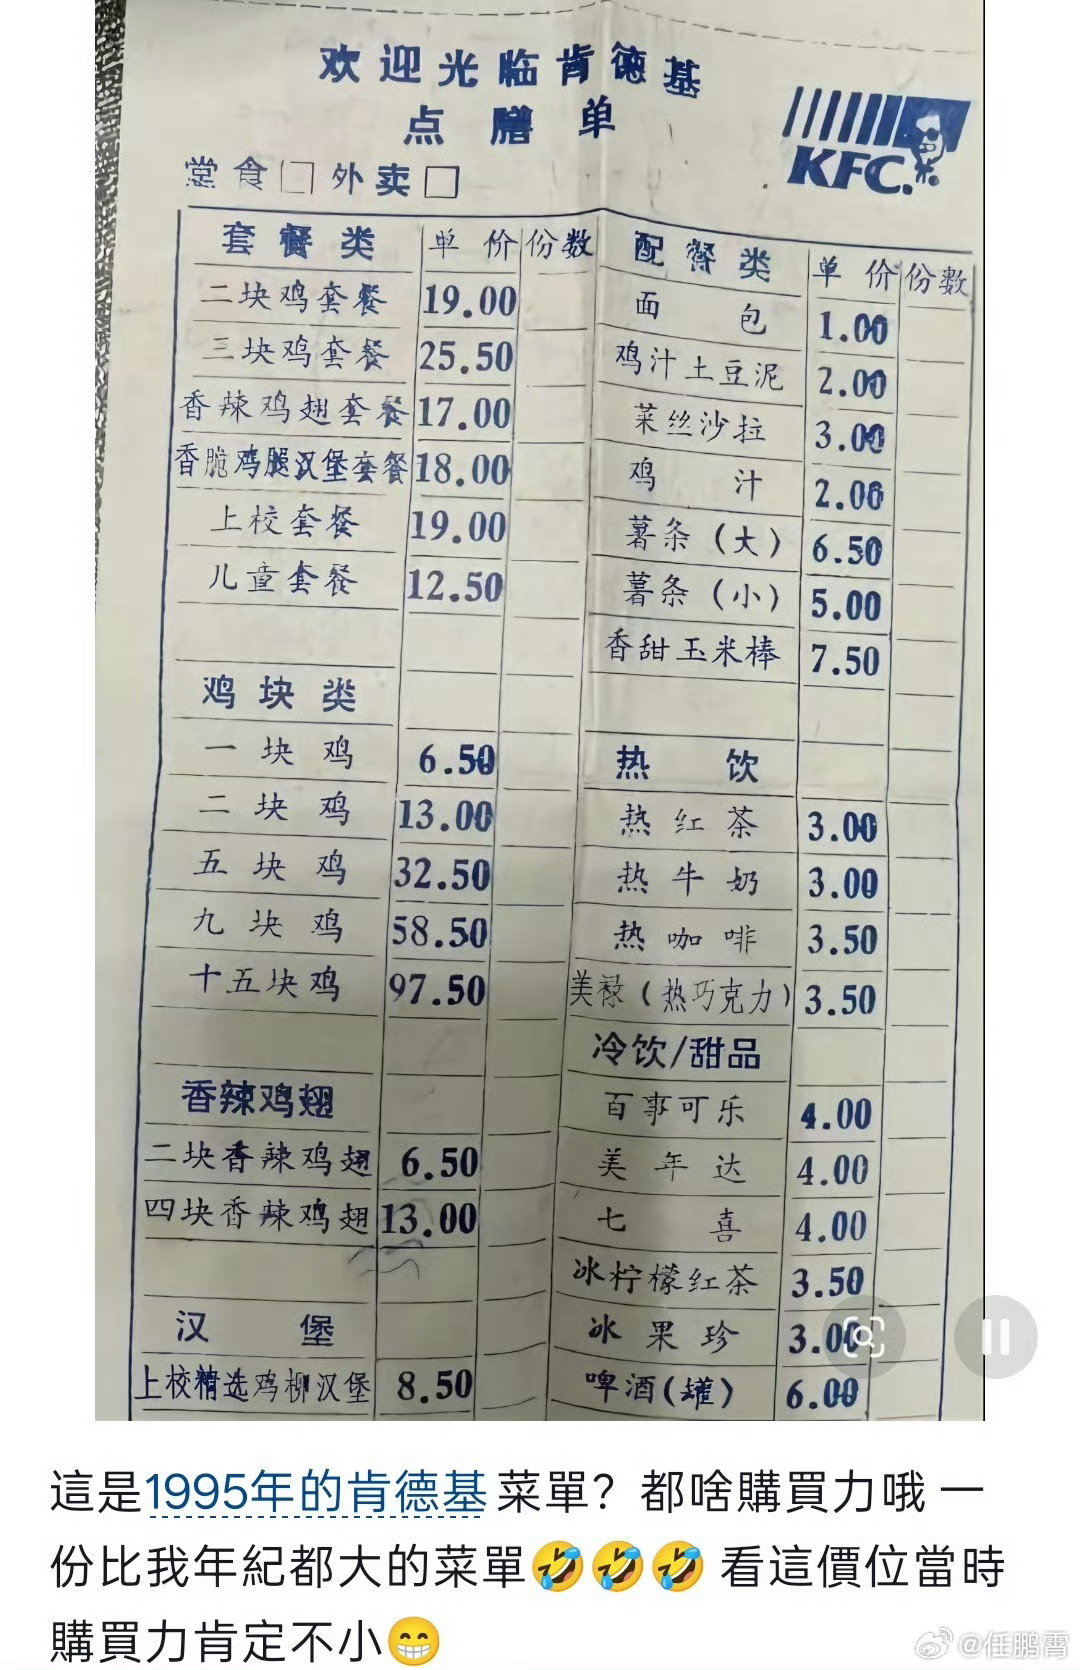 欢迎光临肯德基
点膳单
KFC.
堂食□ 外卖□
套餐类 单价 份数
二块鸡套餐 19.00
三块鸡套餐 25.50
香辣鸡翅套餐 17.00
香脆鸡腿汉堡套餐 18.00
上校套餐 19.00
儿童套餐 12.50
鸡块类
一块鸡 6.50
二块鸡 13.00
五块鸡 32.50
九块鸡 58.50
十五块鸡 97.50
香辣鸡翅
二块香辣鸡翅 6.50
四块香辣鸡翅 13.00
汉堡
上校精选鸡柳汉堡 8.50
配餐类 单价 份数
面包 1.00
鸡汁土豆泥 2.00
菜丝沙拉 3.00
鸡汁 2.00
薯条(大) 6.50
薯条(小) 5.00
香甜玉米棒 7.50
热饮
热红茶 3.00
热牛奶 3.00
热咖啡 3.50
美禄(热巧克力) 3.50
冷饮/甜品
百事可乐 4.00
美年达 4.00
七喜 4.00
冰柠檬红茶 3.50
冰果珍 3.00
啤酒(罐) 6.00
這是1995年的肯德基菜單？都啥購買力哦 一
份比我年紀都大的菜單🤣🤣🤣 看這價位當時
購買力肯定不小😁
@任鹏霄